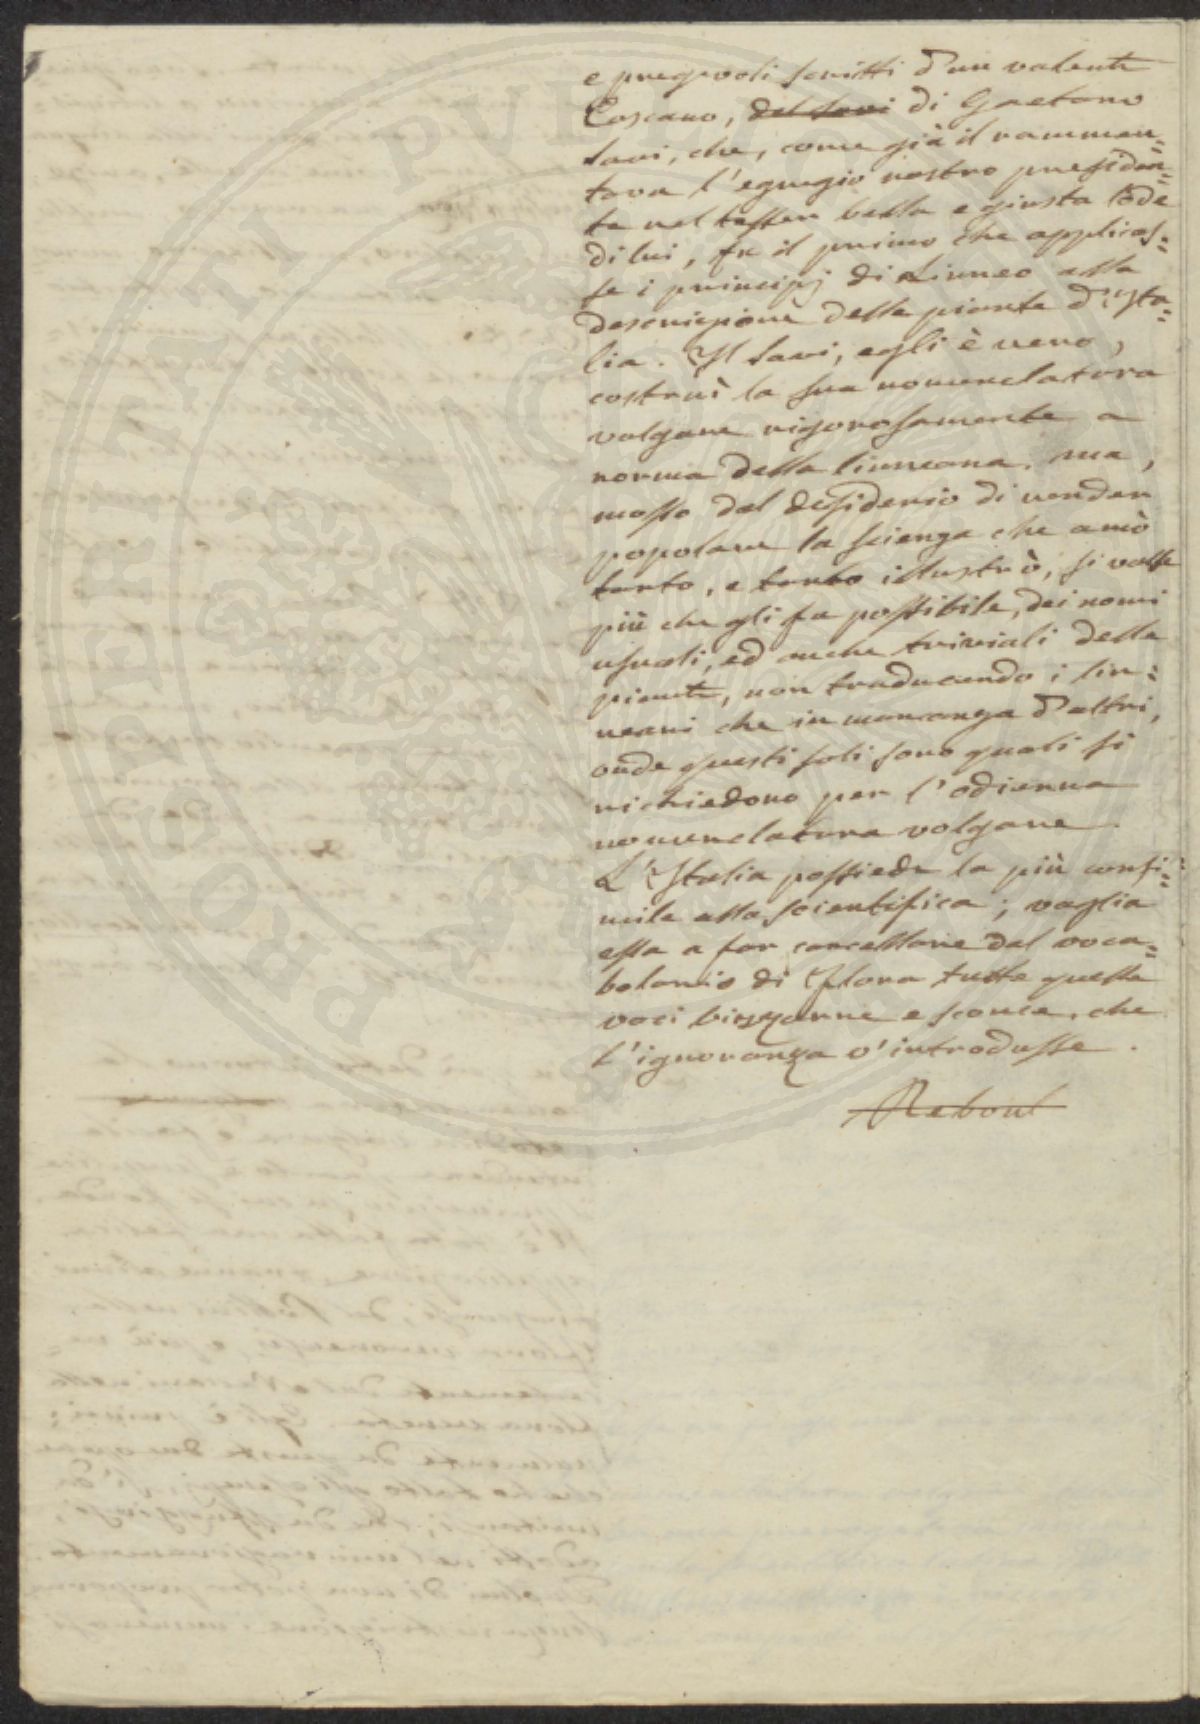 e pregevoli scritti d'un valente
Toscano, del Savi di Gaetano
Savi, che, come già il rammen=
tava l'egregio nostro presiden=
te nel tesser bella e giusta lode
di lui, fu il primo che applicas=
se i principj di Linneo alla
descrizione delle piante d'Ita=
lia. Il Savi, egli è vero,
costruì la sua nomenclatura
volgare rigorosamente a
norma della linneana, ma,
mosso dal desiderio di render
popolare la scienza che amò
tanto, e tanto illustrò, si valse
più che gli fu possibile, dei nomi
usuali, ed anche triviali delle
piante, non traducendo i lin=
neani che in mancanza d'altri,
onde questi soli sono quali si
richiedono per l'odierna
nomenclatura volgare.
L'Italia possiede la più consi=
mile alla scientifica; voglia
essa a far cancellare dal voca=
bolario di Flora tutte quelle
voci bizzarre e sconce, che
l'ignoranza v'introdusse.
Reboul